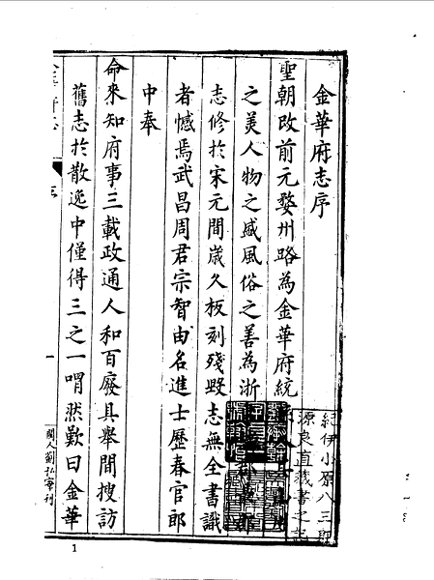 金華府志序
聖朝改前元婺州路為金華府統
之美人物之盛風俗之善為浙
志修於宋元間歲久板刻殘毀志無全書識
者憾焉武昌周君宗智由名進士歷春官郎
中奉
命來知府事三載政通人和百廢具舉間搜訪
舊志於散逸中僅得三之一喟然歎曰金華
紀伊小原八三郎
源良直藏書之記
序
一
閩人劉弘宰刊
1